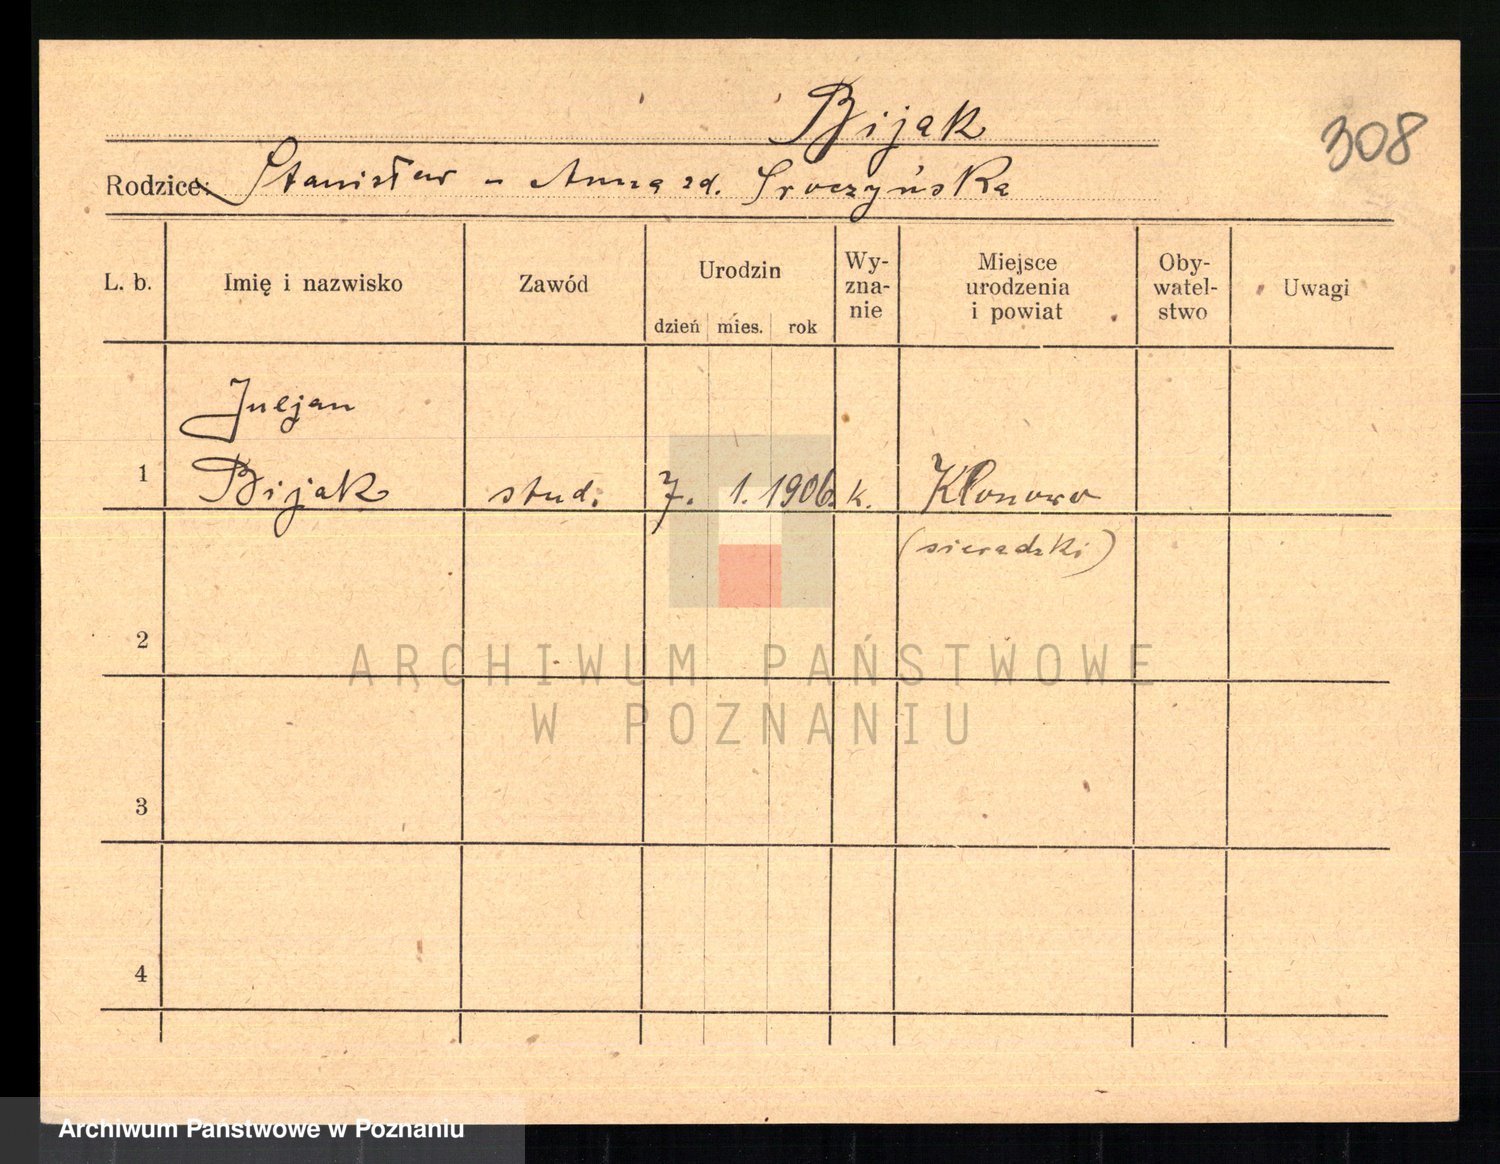 Bijak
308
Rodzice: Stanisław - Anna zd. Sroczyńska
L. b.
Imię i nazwisko
Zawód
Urodzin
dzień mies. rok
Wy-
zna-
nie
Miejsce
urodzenia
i powiat
Oby-
watel-
stwo
Uwagi
Juljan
1 Bijak stud. 7. 1. 1906. k. Klonowo
(sieradzki)
2
ARCHIWUM PAŃSTWOWE
W POZNANIU
3
4
Archiwum Państwowe w Poznaniu